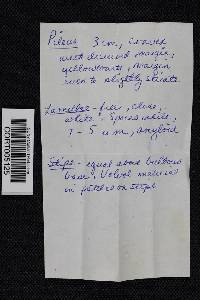 Pileus 3 cm, convex
with decurved margin,
yellowish, margin
even to slightly striate.
Lamellae - free, close,
white. Spores white,
7 - 5 um, amyloid
Stipe - equal above bulbous
base. Volval material
in
CORT005125